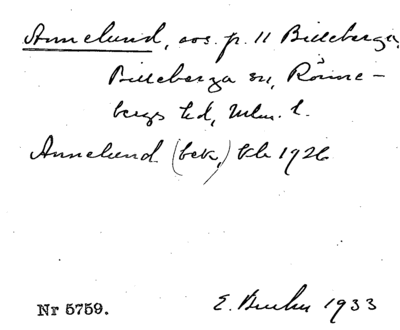 Annelund, avs. p. 11 Billeberga,
Billeberga sn, Rönne-
bergs hd, Mlm. l.
Annelund (bek.) Ek 1926
Nr 5759.
E. 1933